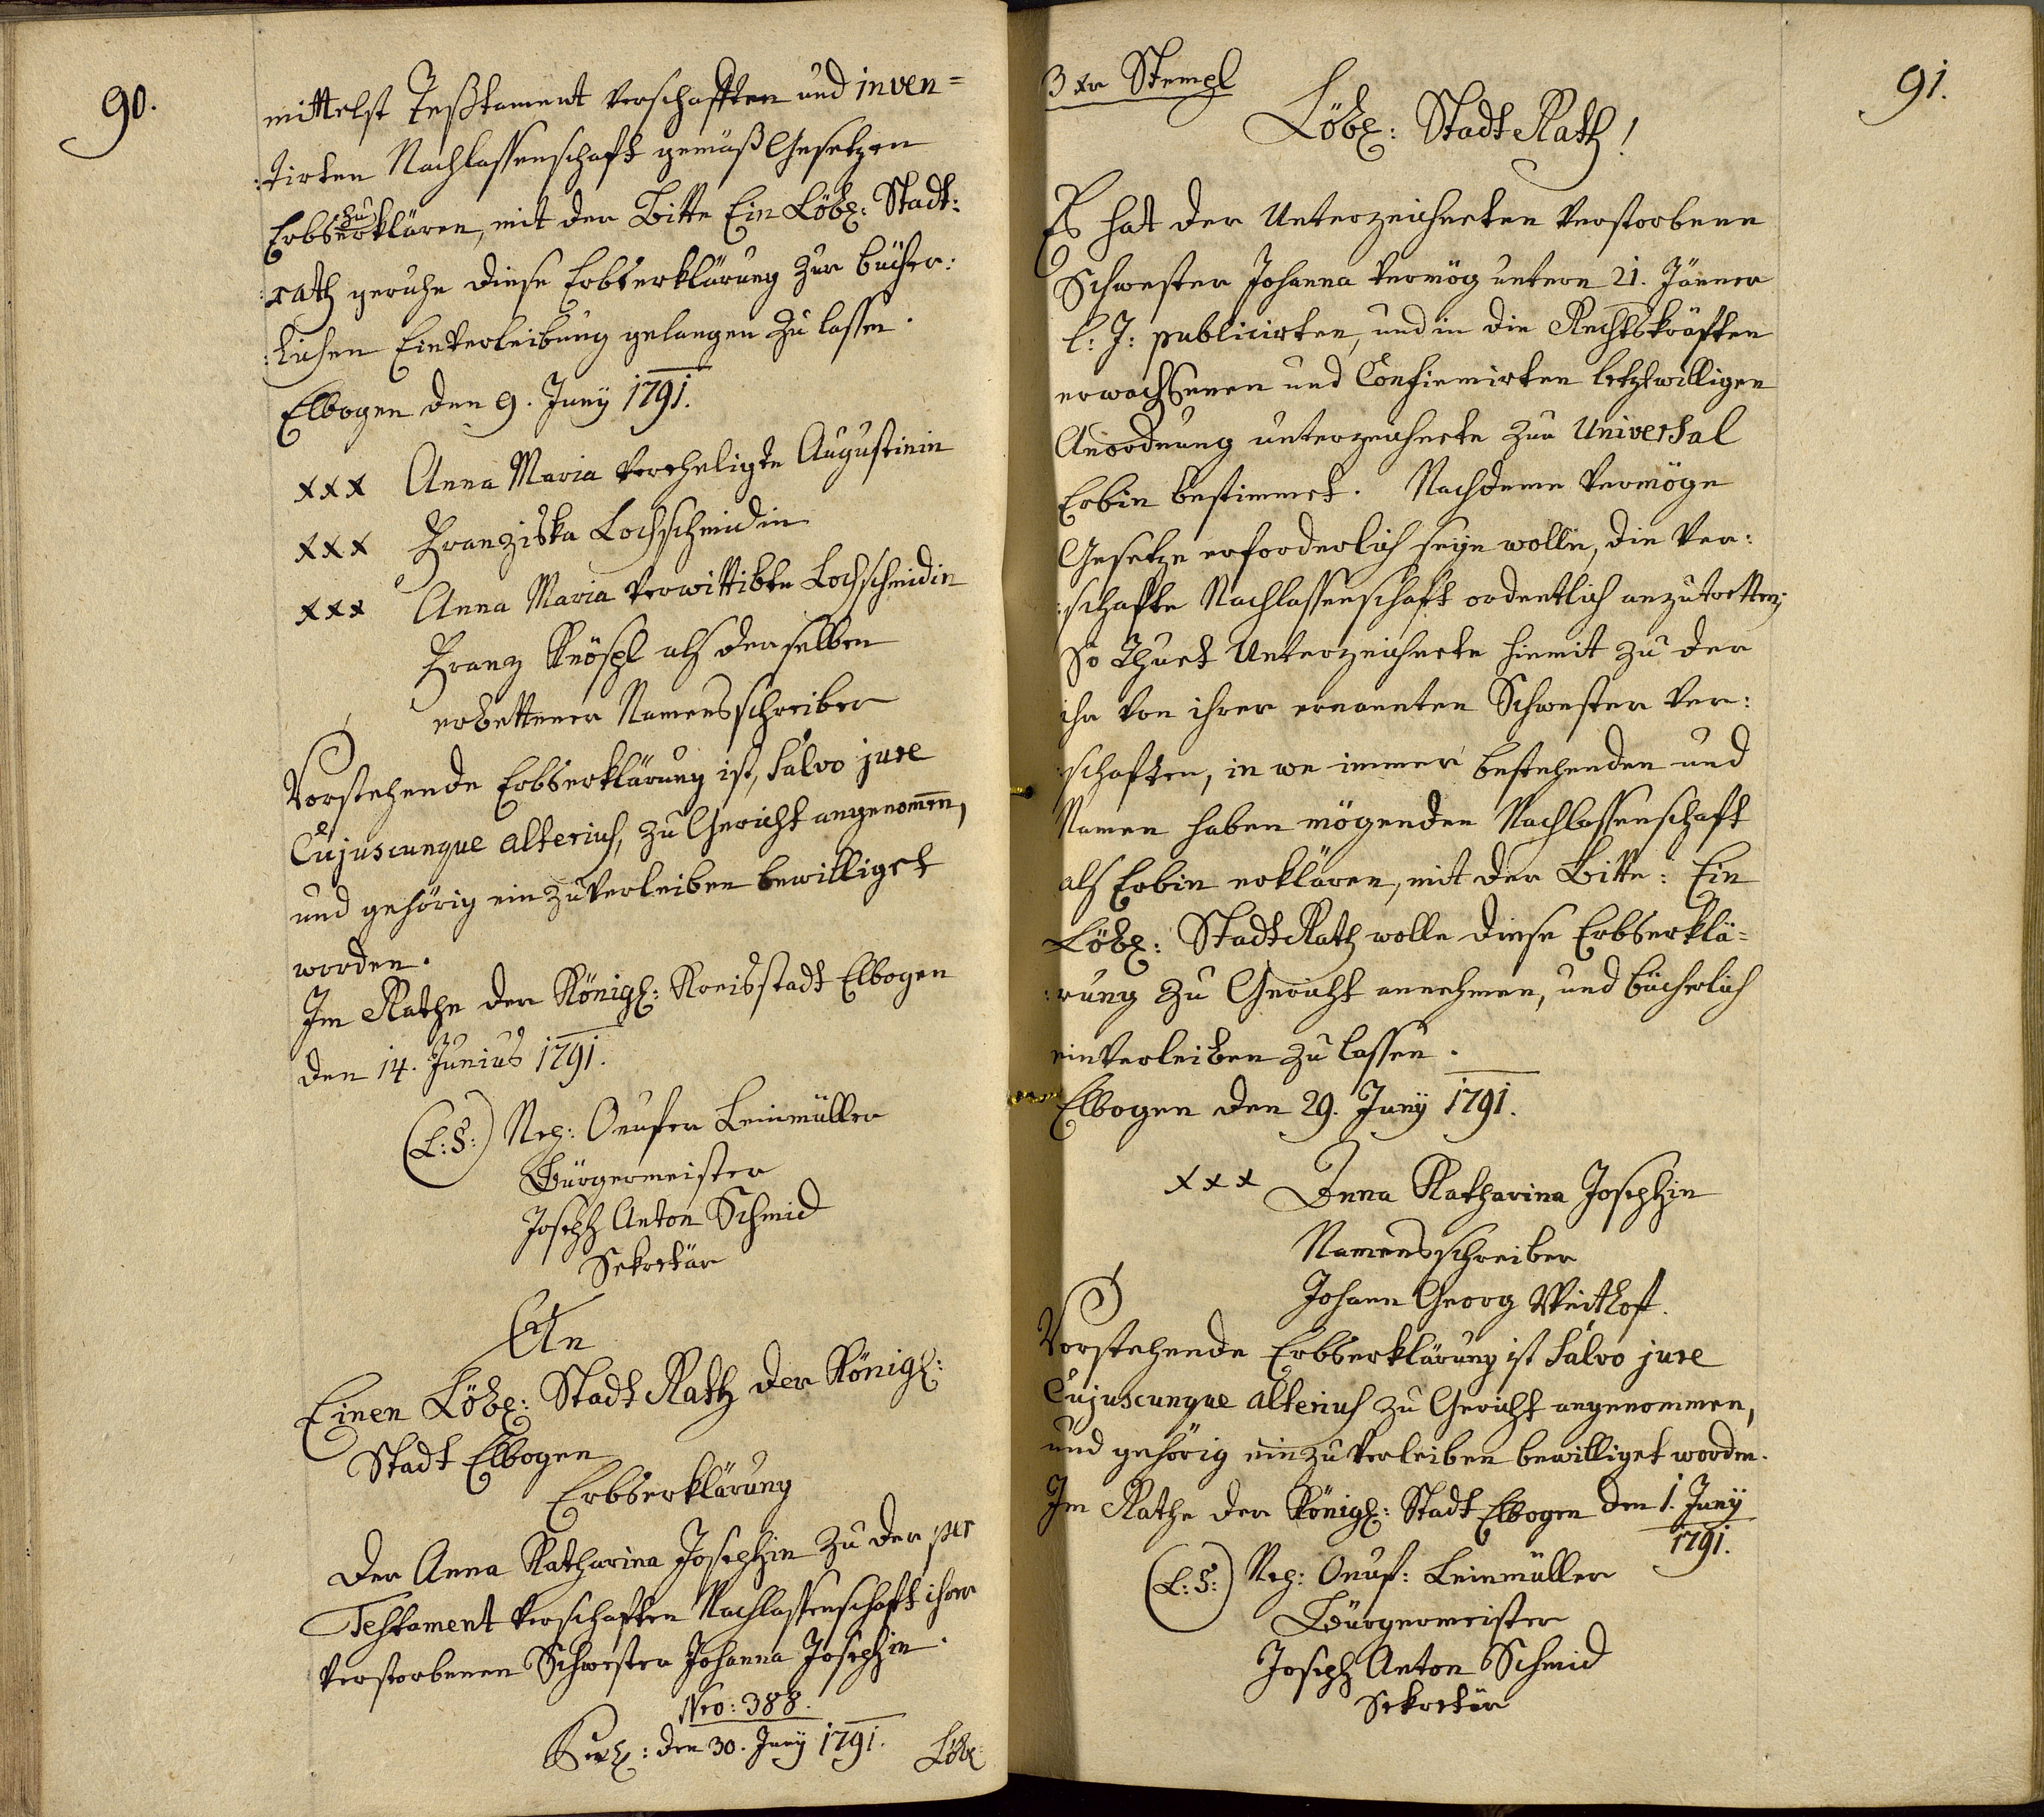 90.
mittelst Teßtament verschafften und inven=
:tirten Nachlassenschaft gemäß Gesetzen
Erbs zu erklären, mit der Bitte Ein Löbl: Stadt:
:rath geruhe diese Erbserklärung zur bücher:
:lichen Einverleibung gelangen zu lassen.
Elbogen den 9. Juny 1791.
xxx Anna Maria verehligte Augustinin
xxx Franziska Lochschmidin
xxx Anna Maria verwittibte Lochschmidin
Franz Knöspl als derselben
erbettener Namensschreiber
Vorstehende Erbserklärung ist, salvo jure
Cujuscunque alterius, zu Gericht angenomen,
und gehörig einzuverleiben bewilliget
worden.
Im Rathe der Königl: Kreisstadt Elbogen
den 14. Junius 1791.
(L:S:) Nep: Onufer Leinmüller
Bürgermeister
Joseph Anton Schmid
Sekretär
An
Einen Löbl: Stadt Rath der Königl:
Stadt Elbogen
Erbserklärung
Der Anna Katharina Josephin zu der per
Testament verschaften Nachlassenschaft ihrer
verstorbenen Schwester Johanna Josephin.
Nro: 388.
den 30. Juny 1791.
Löbl
91.
3 xr Stempl
Löbl: Stadt Rath!
Es hat der Unterzeichneten verstorbene
Schwester Johanna vermög untern 21. Jänner
l: J: publicirten, und in die Rechtskräften
erwachsenen und Confirmirten letztwilligen
Anordnung unterzeichnete zur Universal
Erbin bestimmet. Nachdeme vermöge
Gesetze erforderlich seyn wolle, die Ver:
:schafte Nachlassenschaft ordentlich anzutretten;
So Thuet Unterzeichnete hiemit zu der
ihr von ihrer ernannten Schwester Ver:
:schaften, in we immer bestehenden und
Namen haben mögenden Nachlassenschaft
als Erbin erklären, mit der Bitte: Ein
Löbl: Stadt Rath wolle diese Erbserklä=
:rung zu Gericht annehmen, und bücherlich
einverleiben zu lassen.
Elbogen den 29. Juny 1791.
xxx Anna Katharina Josephin
Namensschreiber
Johann Georg
Vorstehende Erbserklärung ist salvo jure
Cujuscunque alterius zu Gericht angenommen,
und gehörig einzuverleiben bewilliget worden.
Im Rathe der Königl: Stadt Elbogen den 1. Juny
1791.
(L:S:) Nep: Onuf: Leinmüller
Bürgermeister
Joseph Anton Schmid
Sekretär